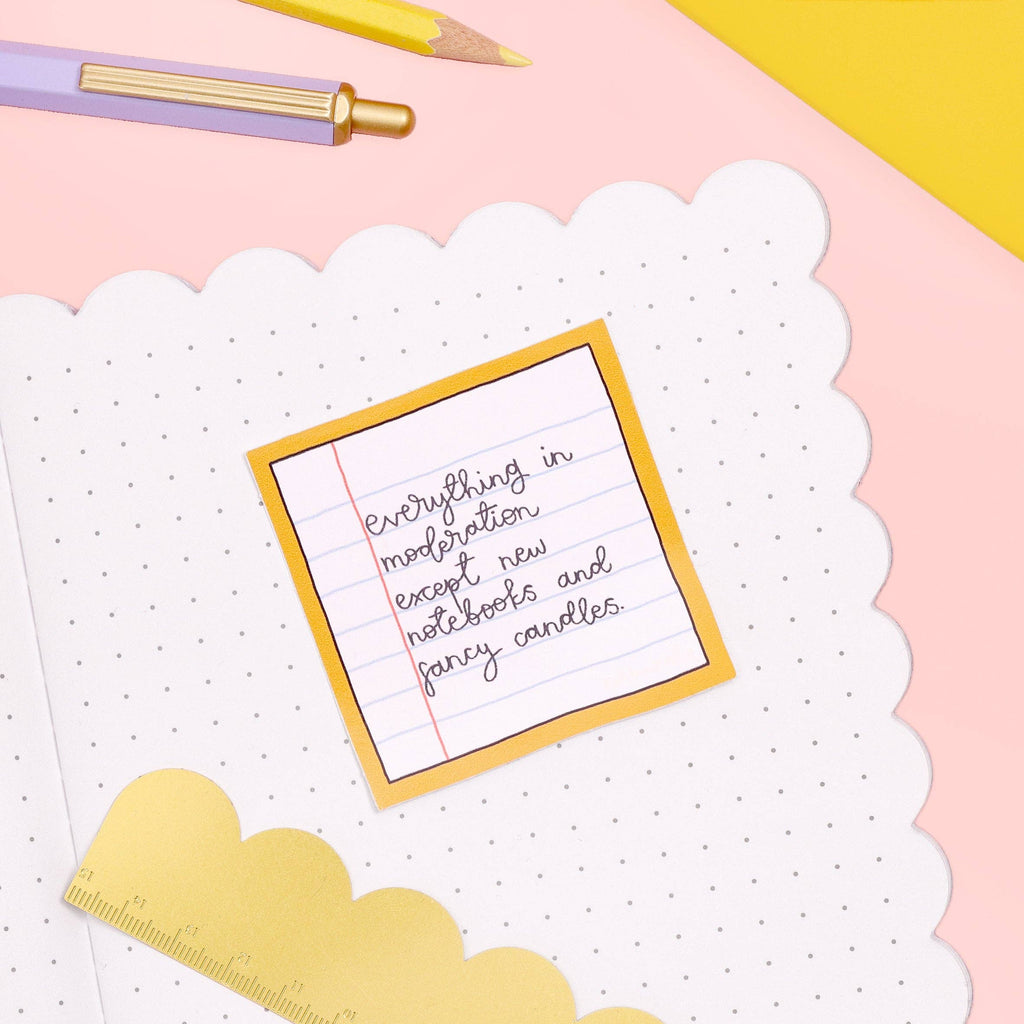 everything in
moderation
except new
notebooks and
fancy candles.
15
14
13
12
11
10